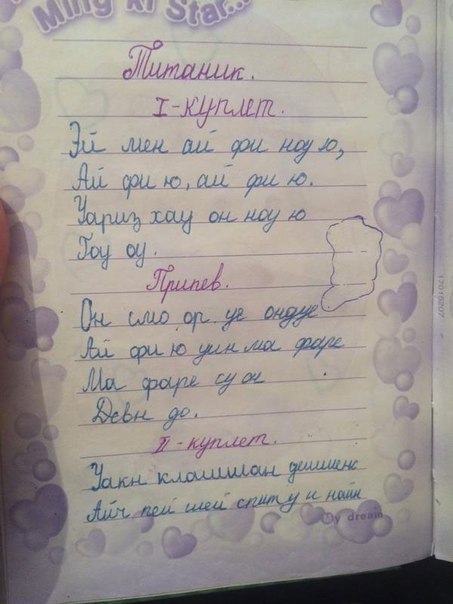 Ming xi Star...
Титаник.
I-куплет.
Эй мен ай фи ноу ю,
Ай фи ю, ай фи ю.
Уариз хау он ноу ю
Гоу оу.
Припев.
Он смо ор уе ондуе
Ай фи ю уин ма фаре
Ма фаре су он
Девн до.
II-куплет.
Уакн клашиан дишиенс
Айч пей шей спиту и найн
My dream
17016207